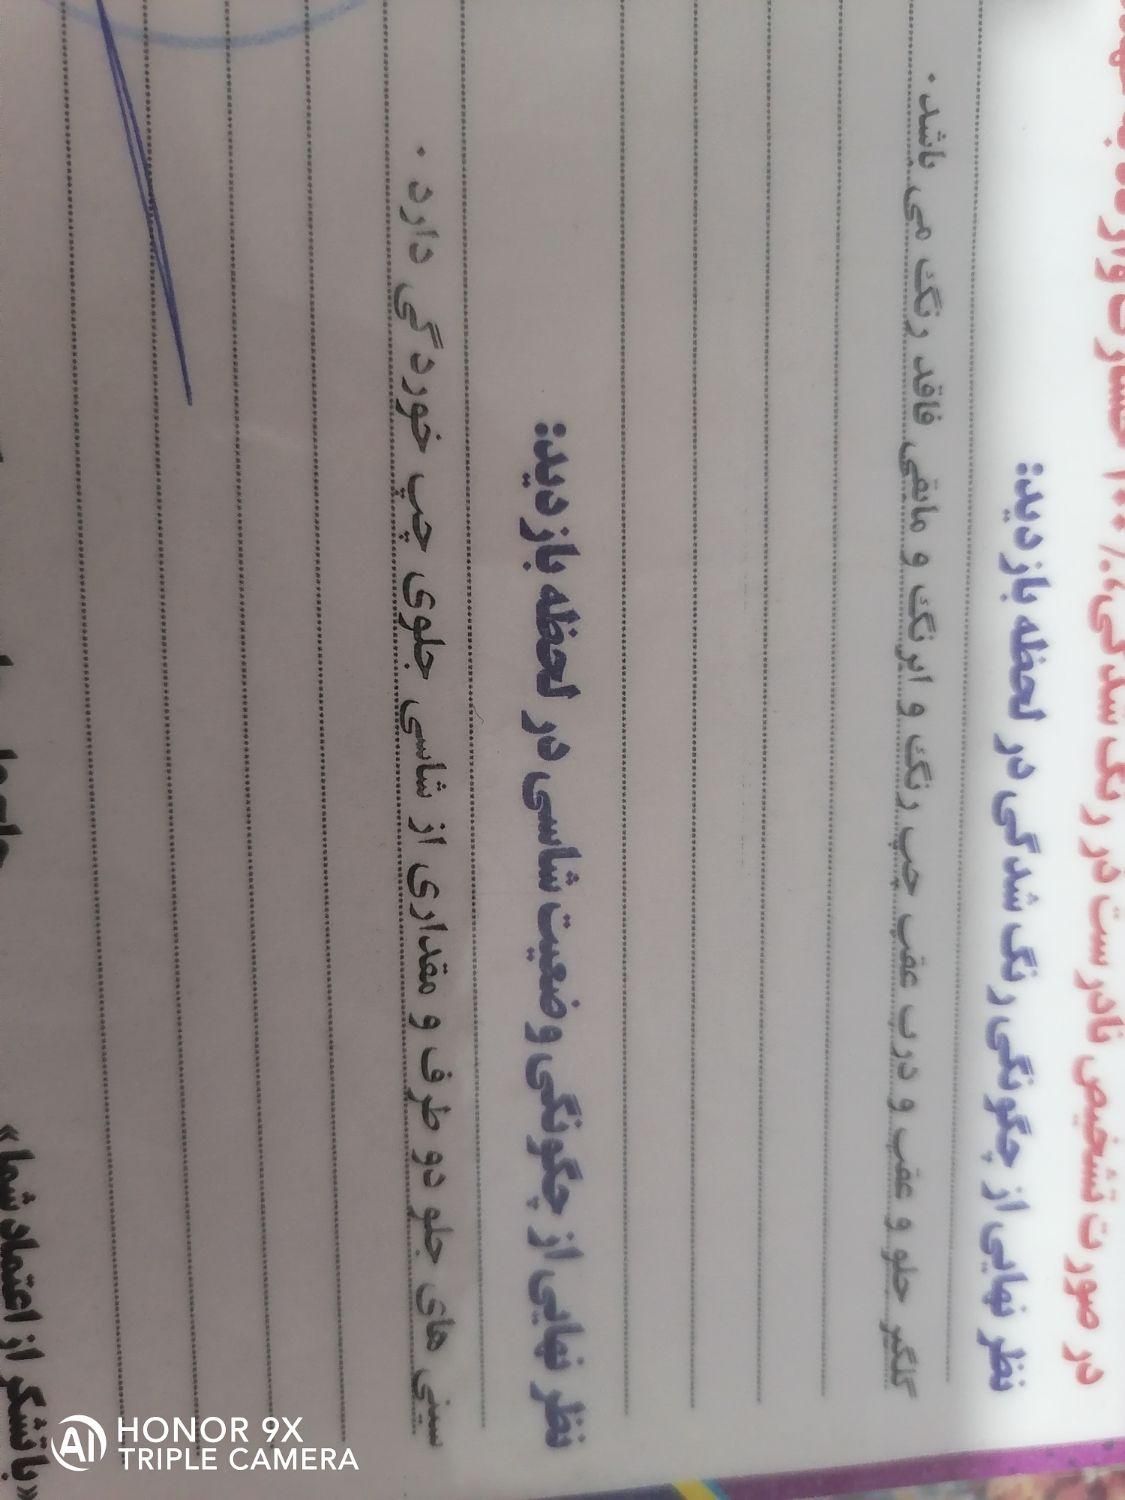 در صورت تشخیص نادرست در رنگ شدگی، ۱۰۰٪ خسارت وارده به
نظر نهایی از چگونگی رنگ شدگی در لحظه بازدید:
گلگیر جلو و عقب و درب عقب چپ رنگ و ابرنگ و مابقی فاقد رنگ می باشد .
نظر نهایی از چگونگی وضعیت شاسی در لحظه بازدید:
سینی های جلو دو طرف و مقداری از شاسی جلوی چپ خوردگی دارد .
«با تشکر از اعتماد شما»
HONOR 9X
TRIPLE CAMERA